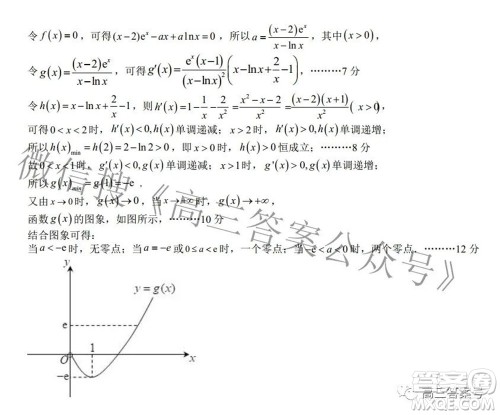 令 f(x)=0，可得(x-2)eˣ-ax+a ln x=0，所以 a=(x-2)eˣ/(x-ln x)，其中(x>0)，
令 g(x)=(x-2)eˣ/(x-ln x)，可得 g′(x)=eˣ(x-1)/(x-ln x)²(x-ln x+2/x-1)，………7 分
令 h(x)=x-ln x+2/x-1，则 h′(x)=1-1/x-2/x²=(x²-x-2)/x²=(x-2)(x+1)/x²(x>0)，
可得 0<x<2 时，h′(x)<0,h(x)单调递减；x>2 时，h′(x)>0,h(x)单调递增；
所以 h(x)min=h(2)=2-ln 2>0，即 x>0 时，h(x)>0 恒成立；………8 分
故 0<x<1 时，g′(x)<0,g(x)单调递减；x>1 时，g′(x)>0,g(x)单调递增；
所以 g(x)min=g(1)=-e．
又由 x→0 时，g(x)→0，当 x→+∞ 时，g(x)→+∞，
函数 g(x)的图象，如图所示，………10 分
结合图象可得：
当 a<-e 时，无零点；当 a=-e 或 0≤a<e 时，一个零点；当 -e<a<0 时，两个零点．………12 分
y
y=g(x)
e
O
1
x
-e
微信搜《高三答案公众号》
高三答案号
答案圈
MXQE.COM